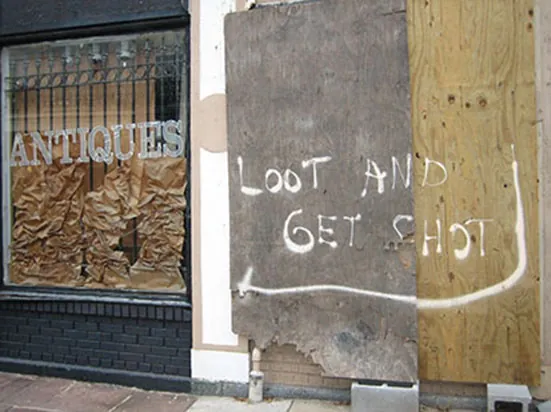 ANTIQUES
LOOT AND
GET SHOT